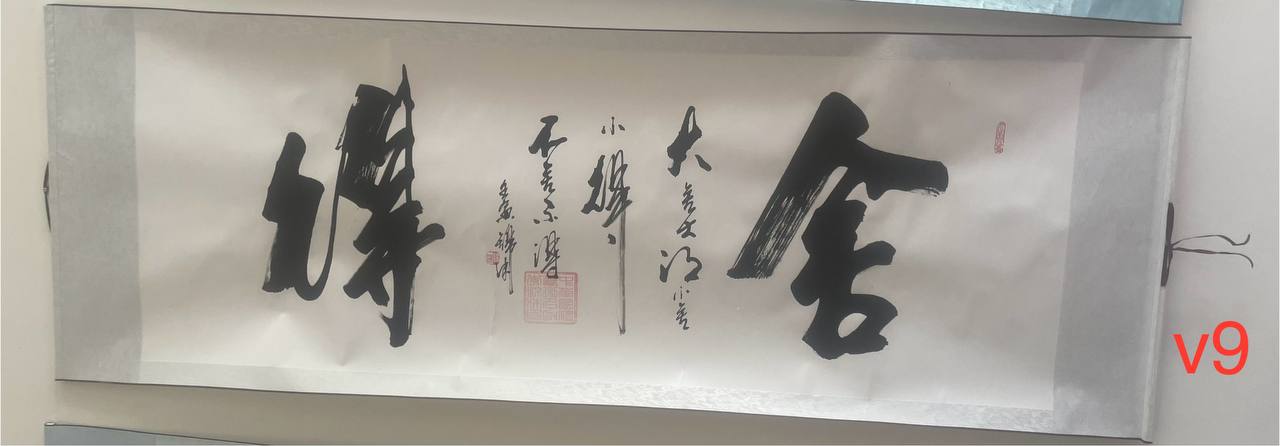 舍得
大舍大得小舍
小得
不舍不得
v9